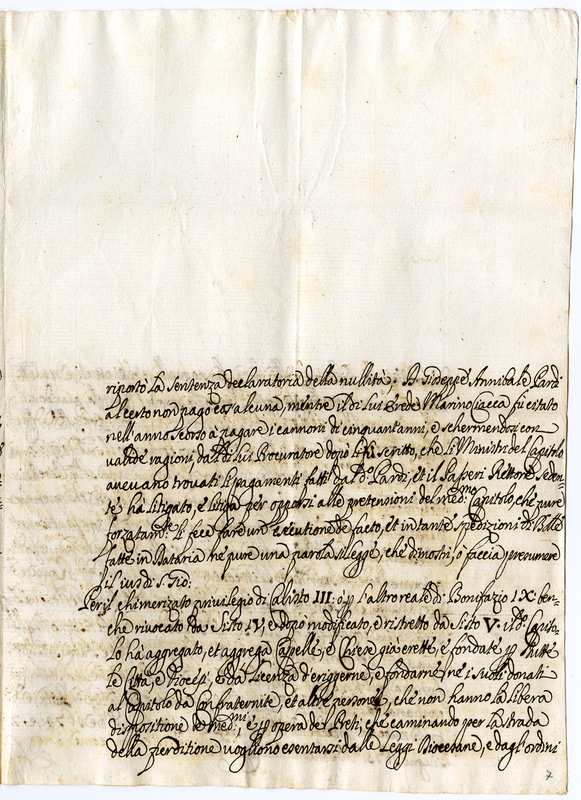 riportò la sentenza declaratoria della nullità; D. Gioseppe Annibale Pardi
al certo non pagò cosa alcuna, mentre il di lui Erede Marino Ciacca fu citato
nell'anno scorso à pagare i cannoni di cinquant'anni, e schermendosi con
valide ragioni, dal di lui Procuratore dopò hà scritto, che li Ministri del Capitolo
avevano trovati li pagamenti fatti dal d.º Pardi, et il Passeri Rettore seden-
te hà litigato, e litiga per opporsi alle pretensioni del med.mo Capitolo, che pure
forzatam.te li fece fare un' esecutione de facto, et in tante spedizioni di Bolle
fatte in Dataria nè pure una parola si legge, che dimostri, ò faccia presumere
il ius di S. Gio:
Per il chimerizato privilegio di Calisto III. ò p l'altro reale di Bonifazio IX. ben-
che rivocato da Sisto IV, e dopò modificato, e ristretto da Sisto V. il d.º Capito-
lo hà aggregato, et aggrega Capelle, e Chiese già erette, e fondate p tutte
le Città, e Diocesi, e dà licenza d'erigerne, e fondarne nè i suoli donati
al Capitolo da Confraternite, et altre persone, che non hanno la libera
dispositione de med.mi, e p opera de Preti, che caminando per la strada
della perditione vogliono esentarsi dalle Leggi Diocesane, e dagl'ordini
7